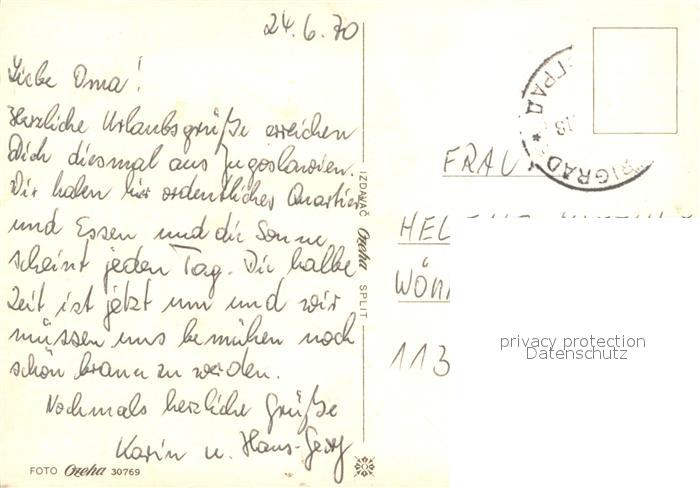 24.6.70
Liebe Oma!
Herzliche Urlaubsgrüße erreichen
Dich diesmal aus Jugoslawien.
Wir haben hier ordentliches Quartier
und Essen und die Sonne
scheint jeden Tag. Die halbe
Zeit ist jetzt um und wir
müssen uns bemühen noch
schön braun zu werden.
Nochmals herzliche Grüße
Karin u. Hans-Georg
FOTO Ozeha 30769
IZDAVAČ Ozeha SPLIT
ГРАД
18
RIGRAD
FRAU
HEL
WÖN
113
privacy protection
Datenschutz